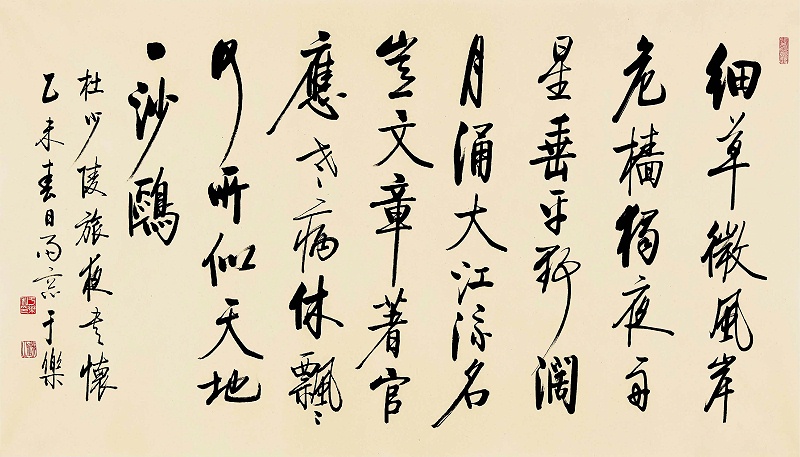 細草微風岸
危檣獨夜舟
星垂平野闊
月涌大江流名
豈文章著官
應老病休飄〻
何所似天地
一沙鷗
杜少陵旅夜書懷
乙未春日于樂